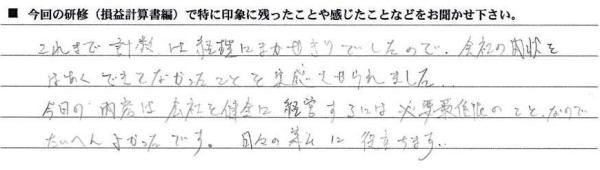 ■ 今回の研修（損益計算書編）で特に印象に残ったことや感じたことなどをお聞かせ下さい。
これまで計数は経理にまかせきりでしたので、会社の内状を
はあくできてなかったことを実感させられました。
今日の内容は会社を健全に経営するには必要最低限のこと、なので
たいへんよかったです。日々の算ムに役立ちます。